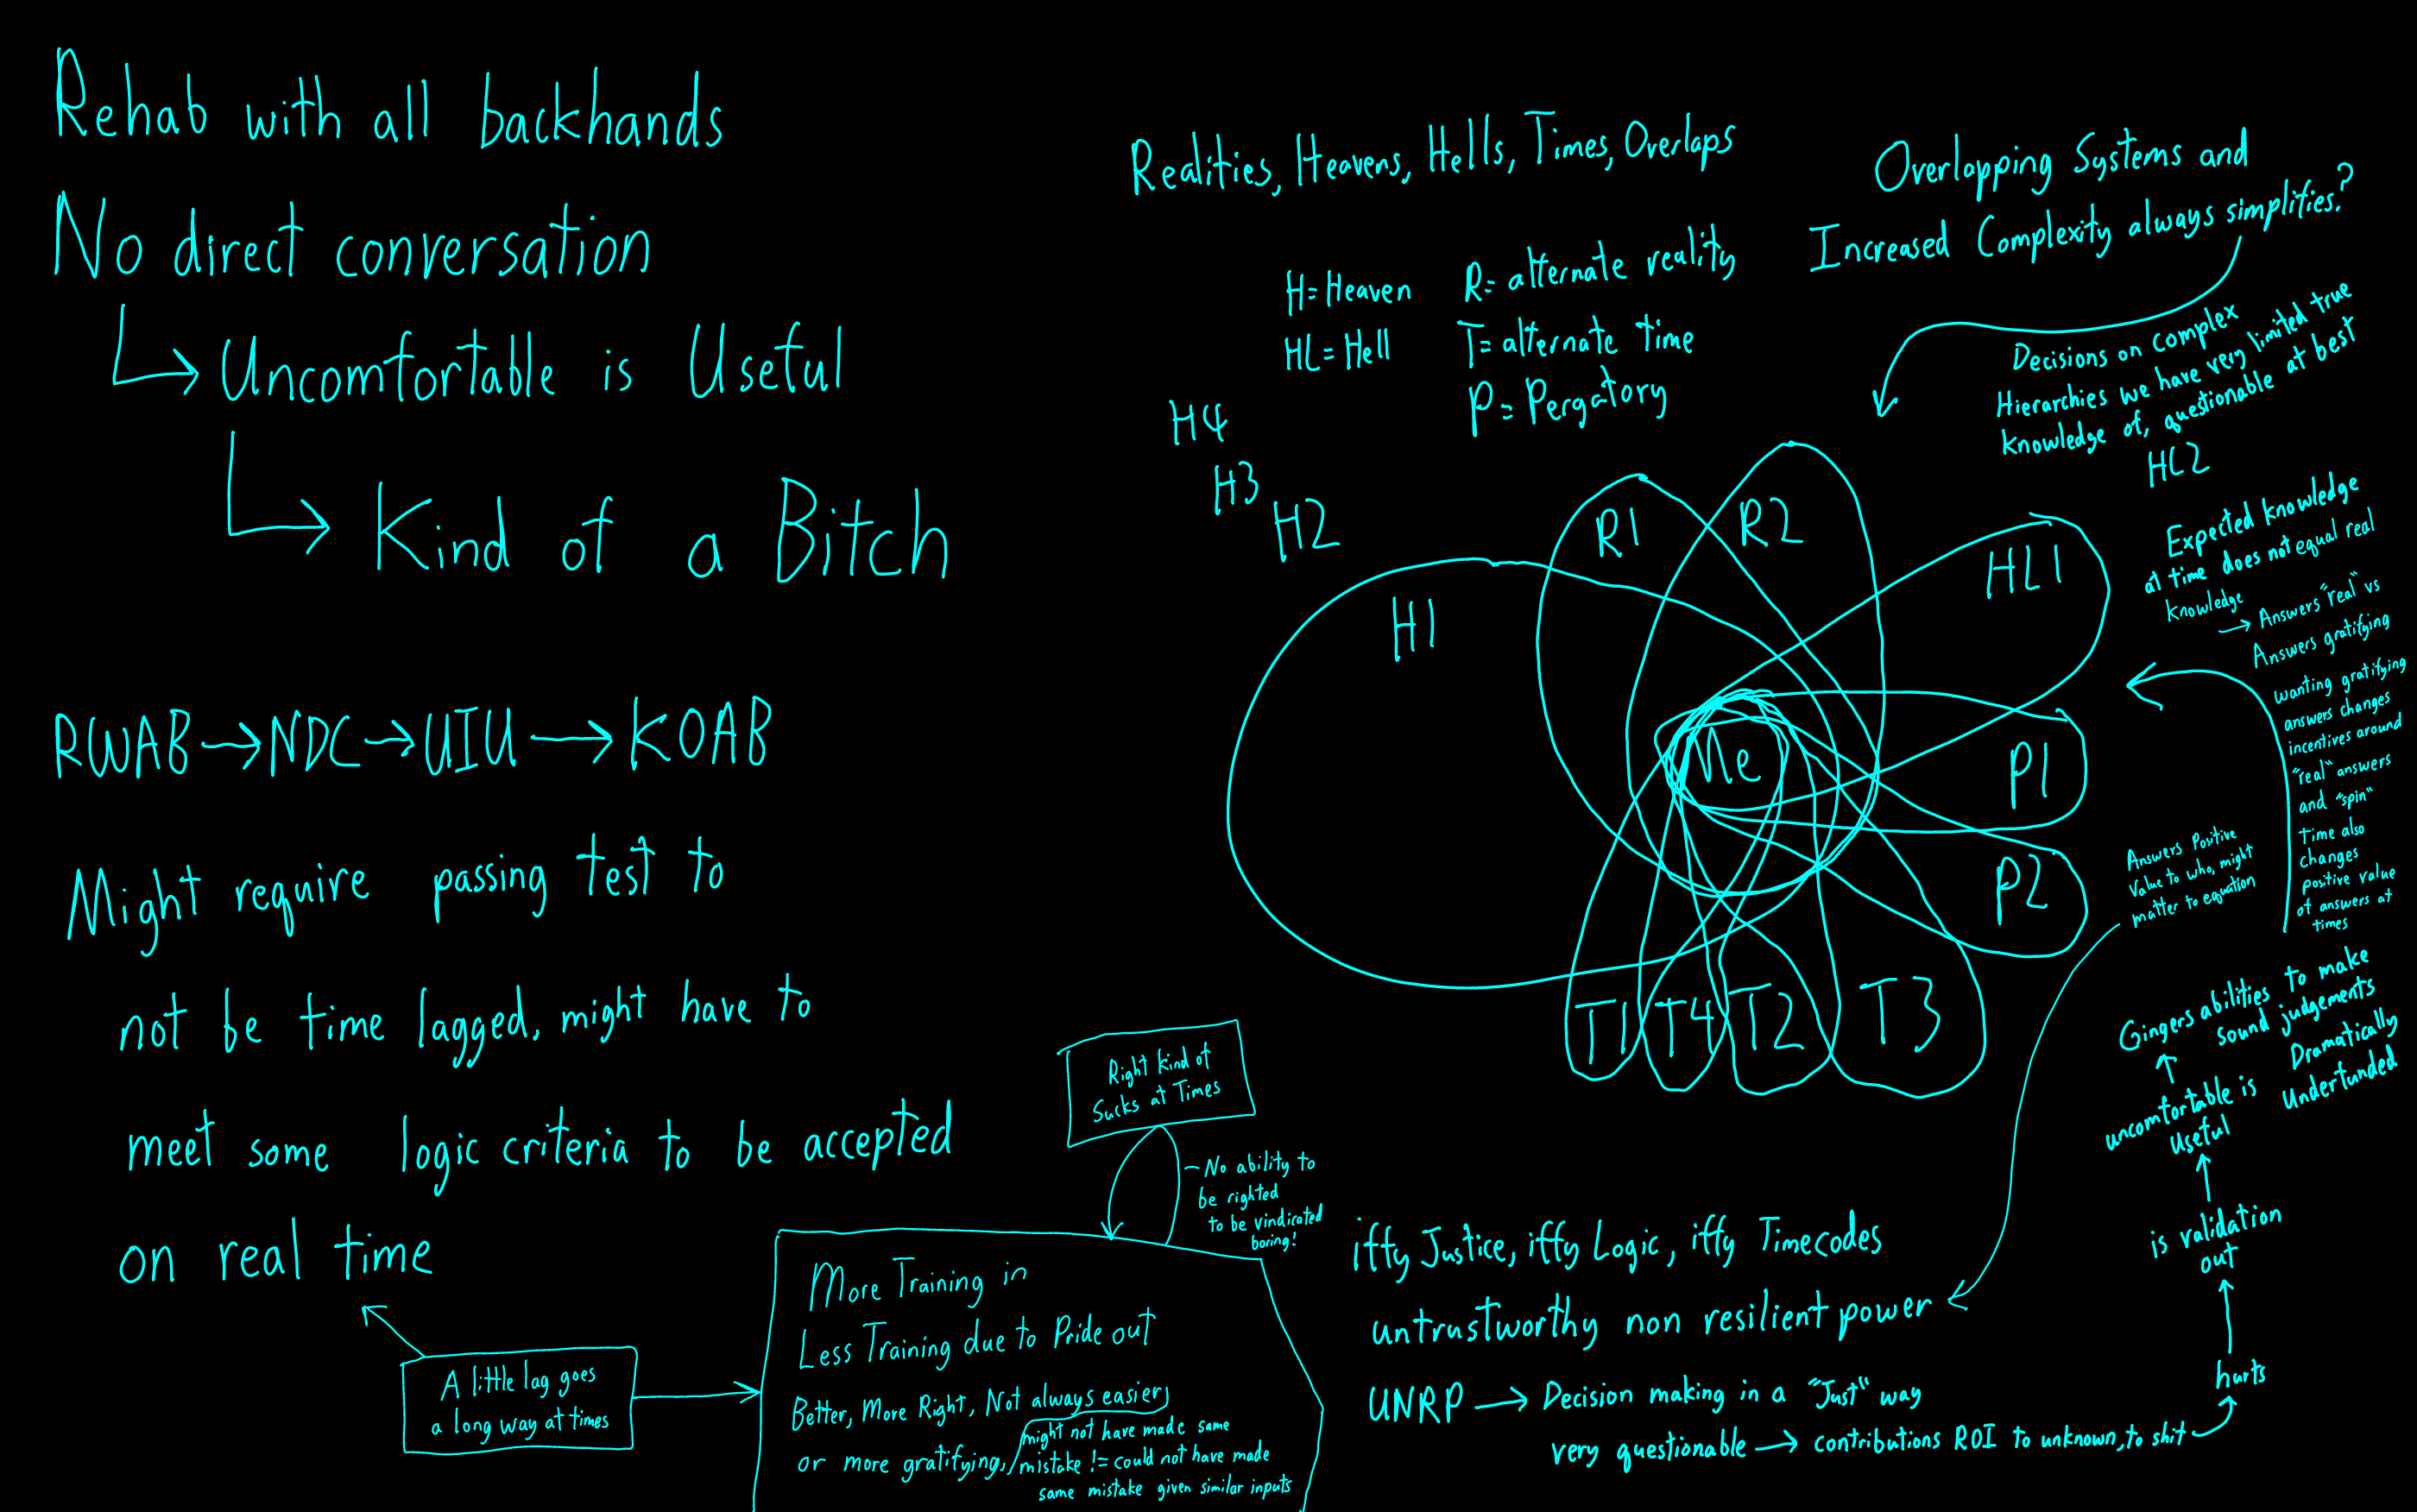 Rehab with all backhands
No direct conversation
Uncomfortable is Useful
Kind of a Bitch
RWAB → NDC → UIU → KOAB
Might require passing test to
not be time lagged, might have to
meet some logic criteria to be accepted
on real time
A little lag goes
a long way at times
Right Kind of
Sucks at Times
- No ability to
be righted
to be vindicated
boring!
More Training in
Less Training due to Pride out
Better, More Right, Not always easier,
or more gratifying,
might not have made same
mistake != could not have made
same mistake given similar inputs
Realities, Heavens, Hells, Times, Overlaps
H = Heaven
HL = Hell
R = alternate reality
T = alternate time
P = Pergatory
H4
H3
H2
H1
R1
R2
HL1
Me
P1
P2
T1
T4
T2
T3
Overlapping Systems and
Increased Complexity always simplifies?
Decisions on complex
Hierarchies we have very limited true
knowledge of, questionable at best
HL2
Expected knowledge
at time does not equal real
knowledge
→ Answers "real" vs
Answers gratifying
wanting gratifying
answers changes
incentives around
"real" answers
and "spin"
time also
changes
positive value
of answers at
times
Answers Positive
Value to who, might
matter to equation
Gingers abilities to make
sound judgements
Dramatically
Underfunded
uncomfortable is
useful
is validation
out
hurts
iffy Justice, iffy Logic, iffy Timecodes
untrustworthy non resilient power
UNRP → Decision making in a "Just" way
very questionable → contributions ROI to unknown, to shit